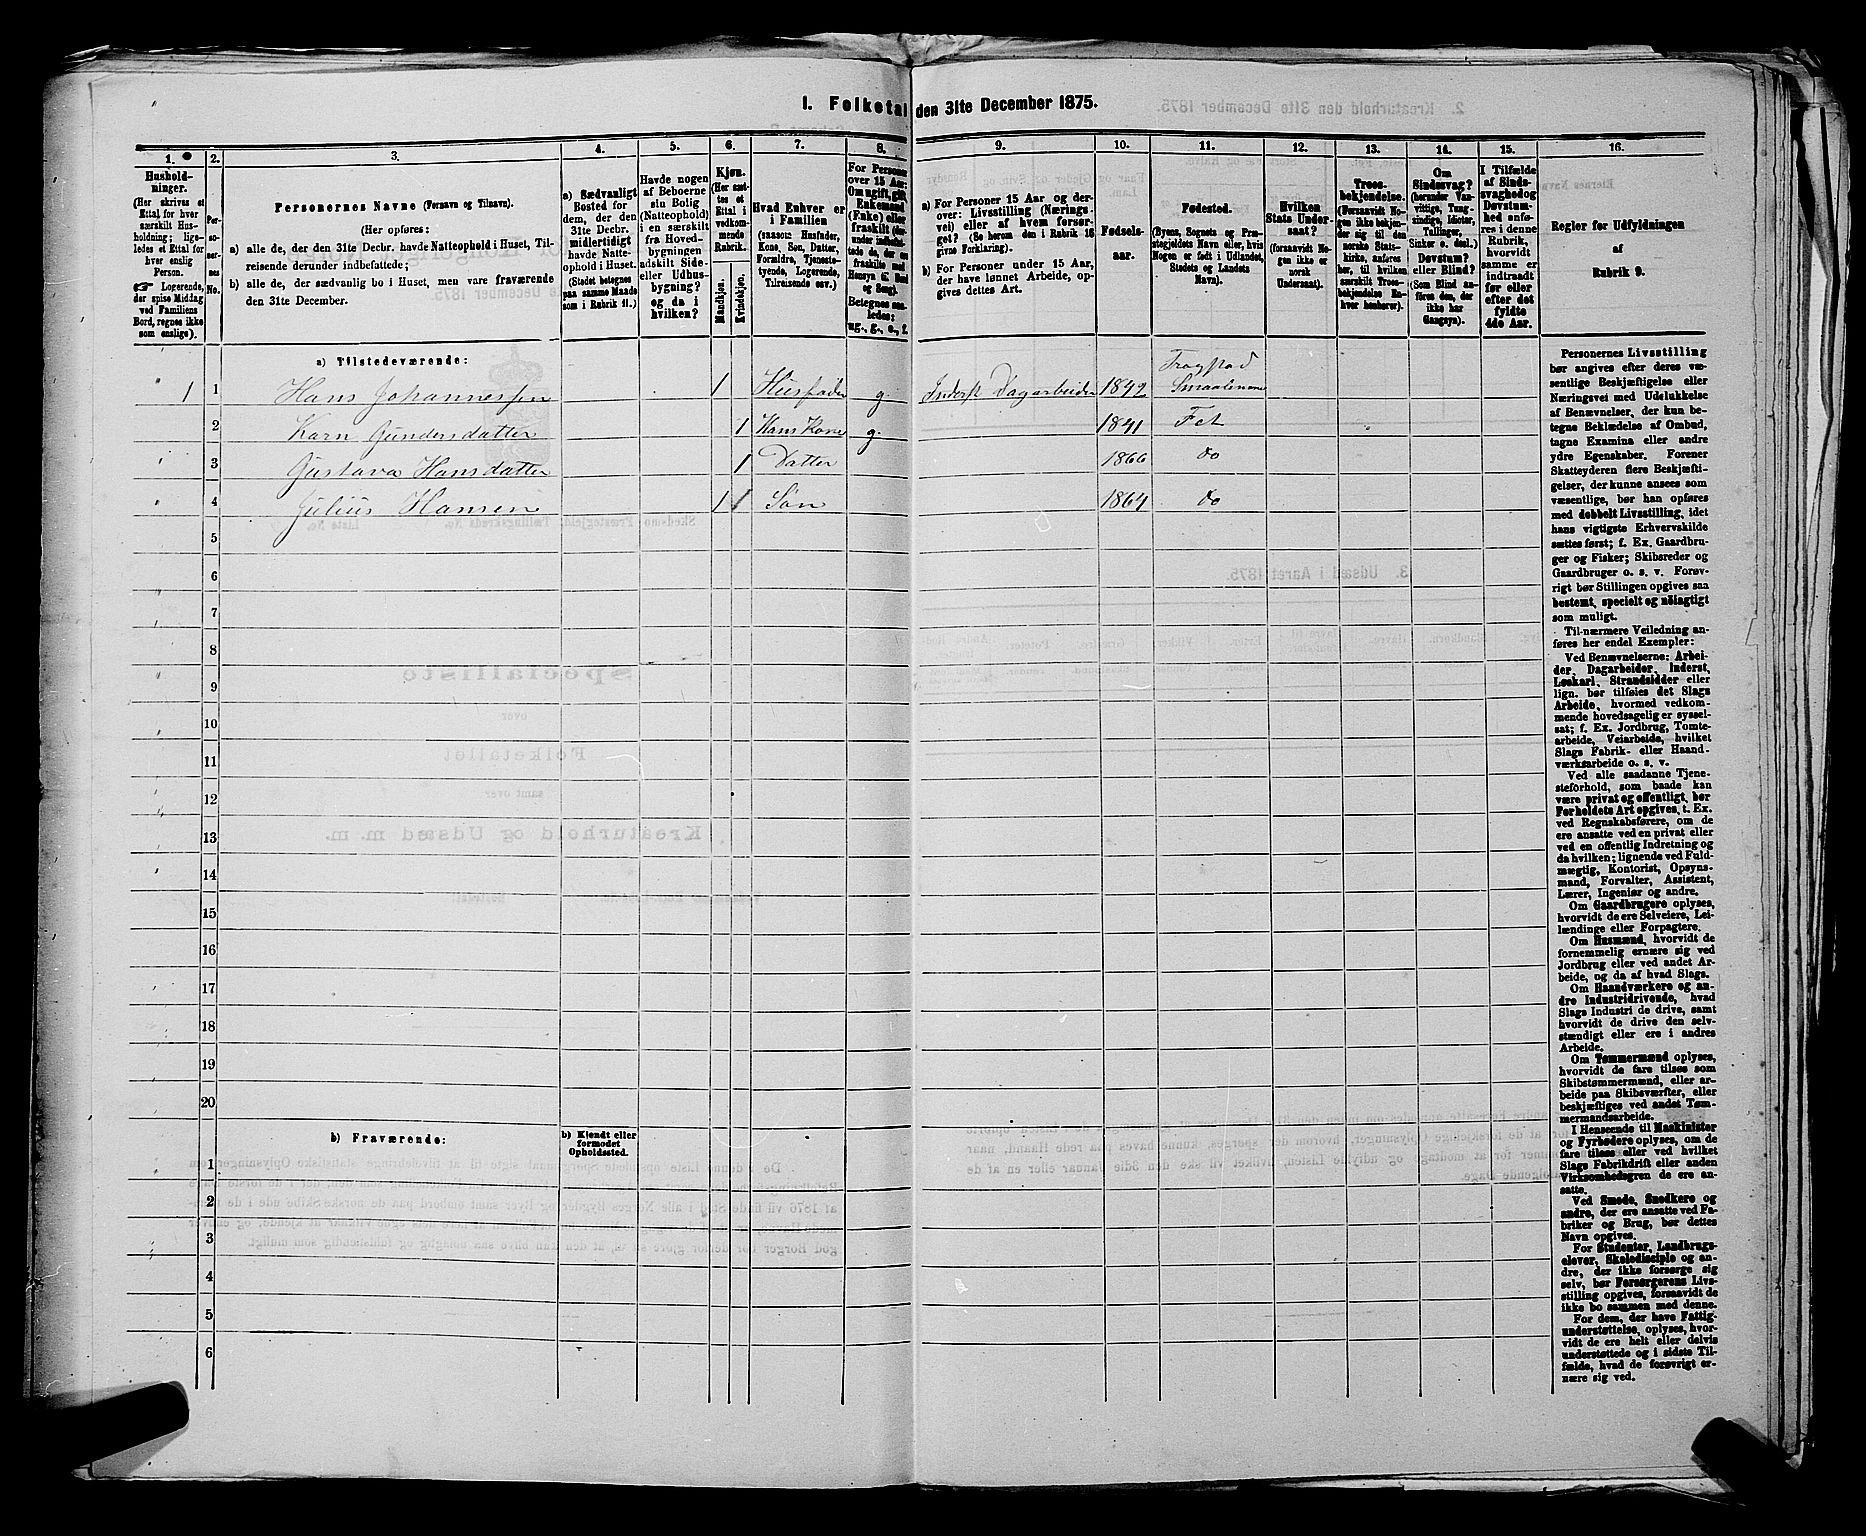 1. Folketal den 31te December 1875.
1.
2.
3.
4.
5.
6.
7.
8.
9.
10.
11.
12.
13.
14.
15.
16.
Hushold-
ninger.
(Her skrives et
Ettal for hver
særskilt Hus-
holdning; lige-
ledes et Ettal for
hver enslig
Person.
☞ Logerende,
der spise Middag
ved Familiens
Bord, regnes ikke
som enslige).
Per-
so-
ner-
nes
No.
Personernes Navne (Fornavn og Tilnavn).
(Her opføres:
a) alle de, der den 31te Decbr. havde Natteophold i Huset, Til-
reisende derunder indbefattede;
b) alle de, der sædvanlig bo i Huset, men vare fraværende
den 31te December.
a) Sædvanligt
Bosted for
dem, der den
31te Decbr.
midlertidigt
havde Natte-
ophold i Huset.
(Stedet betegnes
paa samme Maade
som i Rubrik 11.)
Havde nogen
af Beboerne
sin Bolig
(Natteophold)
i en særskilt
fra Hoved-
bygningen
adskilt Side-
eller Udhus-
bygning?
og da i
hvilken?
Kjøn.
(Her sæt-
tes et
Ettal i
vedkom-
mende
Rubrik.
Mandkjøn.
Kvindekjøn.
Hvad Enhver er
i Familien
(saasom Husfader,
Kone, Søn, Datter,
Forældre, Tjeneste-
tyende, Logerende,
Tilreisende osv.)
For Personer
over 15 Aar:
Om ugift, gift,
Enkemand
(Enke) eller
fraskilt
Betegnes saa-
ledes:
ug., g., e., f.
a) For Personer 15 Aar og der-
over: Livsstilling (Nærings-
vei) eller af hvem forsør-
get? (Se herom den i Rubrik 16
givne Forklaring).
b) For Personer under 15 Aar,
der have lønnet Arbeide, op-
gives dettes Art.
Fødsels-
aar.
Fødested.
(Byens, Sognets og Præ-
stegjeldets Navn eller, hvis
Nogen er født i Udlandet,
Stedets og Landets
Navn).
Hvilken
Stats Under-
saat?
(forsaavidt No-
gen ikke er
norsk
Undersaat).
Troes-
bekjendelse.
(Forsaavidt No-
gen ikke bekjen-
der sig til den
norske Stats-
kirke, anføres
her, til hvilken
særskilt Troes-
bekjendelse En-
hver henhører).
Om
Sindssvag?
(herunder Van-
vittige, Tung-
sindige, Idioter,
Tullinger,
Sinker o. desl.)
Døvstum?
eller Blind?
(Som Blind an-
føres den, der
ikke har
Gangsyn).
I Tilfælde
af Sinds-
svaghed og
Døvstum-
hed anfø-
res i denne
Rubrik,
hvorvidt
samme er
indtraadt
før eller
efter det
fyldte
4de Aar.
Regler for Udfyldningen
af
Rubrik 9.
a) Tilstedeværende:
1 1 Hans Johannessen 1 Husfader g. Inderst Dagarbeider 1842 Trogstad Smaalenene
2 Karn Gundersdatter 1 Hans Kone g. 1841 Fet
3 Gustava Hansdatter 1 Datter 1866 do
4 Julius Hansen 1 1 Søn 1864 do
5
6
7
8
9
10
11
12
13
14
15
16
17
18
19
20
b) Fraværende:
b) Kjendt eller
formodet
Opholdssted.
1
2
3
4
5
6
Personernes Livsstilling
bør angives efter deres væ-
sentlige Beskjæftigelse eller
Næringsvei med Udelukkelse
af Benævnelser, der kun be-
tegne Beklædelse af Ombud,
tagne Examina eller andre
ydre Egenskaber. Forener
Skatteyderen flere Beskjæfti-
gelser, der kunne ansees som
væsentlige, bør han opføres
med dobbelt Livsstilling, idet
hans vigtigste Erhvervskilde
sættes først; f. Ex. Gaardbru-
ger og Fisker; Skibsreder og
Gaardbruger o. s. v. Forøv-
rigt bør Stillingen opgives saa
bestemt, specielt og nöiagtigt
som muligt.
Til nærmere Veiledning an-
føres her endel Exempler:
Ved Benævnelserne: Arbei-
der, Dagarbeider, Inderst,
Løskarl, Strandsidder eller
lign. bør tilføies det Slags
Arbeide, hvormed vedkom-
mende hovedsagelig er syssel-
sat; f. Ex. Jordbrug, Tomte-
arbeide, Veiarbeide, hvilket
Slags Fabrik- eller Haand-
værksarbeide o. s. v.
Ved alle saadanne Tjene-
steforhold, som baade kan
være privat og offentligt, bør
Forholdets Art opgives, t. Ex.
ved Regnskabsførere, om de
ere ansatte ved en privat eller
ved en offentlig Indretning og
da hvilken; lignende ved Fuld-
mægtig, Kontorist, Opsyns-
mand, Forvalter, Assistent,
Lærer, Ingeniør og andre.
Om Gaardbrugere oplyses,
hvorvidt de ere Selveiere, Lei-
lændinge eller Forpagtere.
Om Husmænd, hvorvidt de
fornemmelig ernære sig ved
Jordbrug eller ved andet Ar-
beide, og da af hvad Slags.
Om Haandværkere og an-
dre Industridrivende, hvad
Slags Industri de drive, samt
hvorvidt de drive den selv-
stændigt eller ere i andres
Arbeide.
Om Tømmermænd oplyses,
hvorvidt de fare tilsøs som
Skibstømmermænd, eller ar-
beide paa Skibsværfter, eller
beskjæftiges ved andet Tøm-
mermandsarbeide.
I Henseende til Maskinister
og Fyrbødere oplyses, om de
fare tilsøs eller ved hvilket
Slags Fabrikdrift eller anden
Virksomhedsgren de ere an-
satte.
Ved Smede, Snedkere og
andre, der ere ansatte ved Fa-
briker og Brug, bør dettes
Navn opgives.
For Studenter, Landbrugs-
elever, Skoledisciple og an-
dre, der ikke forsørge sig
selv, bør Forsørgerens Livs-
stilling opgives, forsaavidt de
ikke bo sammen med denne.
For dem, der have Fattig-
understøttelse, oplyses, hvor-
vidt de ere helt eller delvis
understøttede og i sidste Til-
fælde, hvad de forøvrigt er-
nære sig ved.